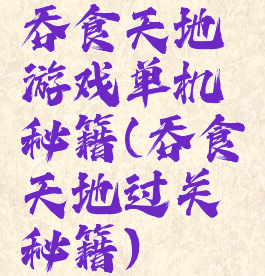 吞食天地
游戏单机
秘籍(吞食
天地过关
秘籍)